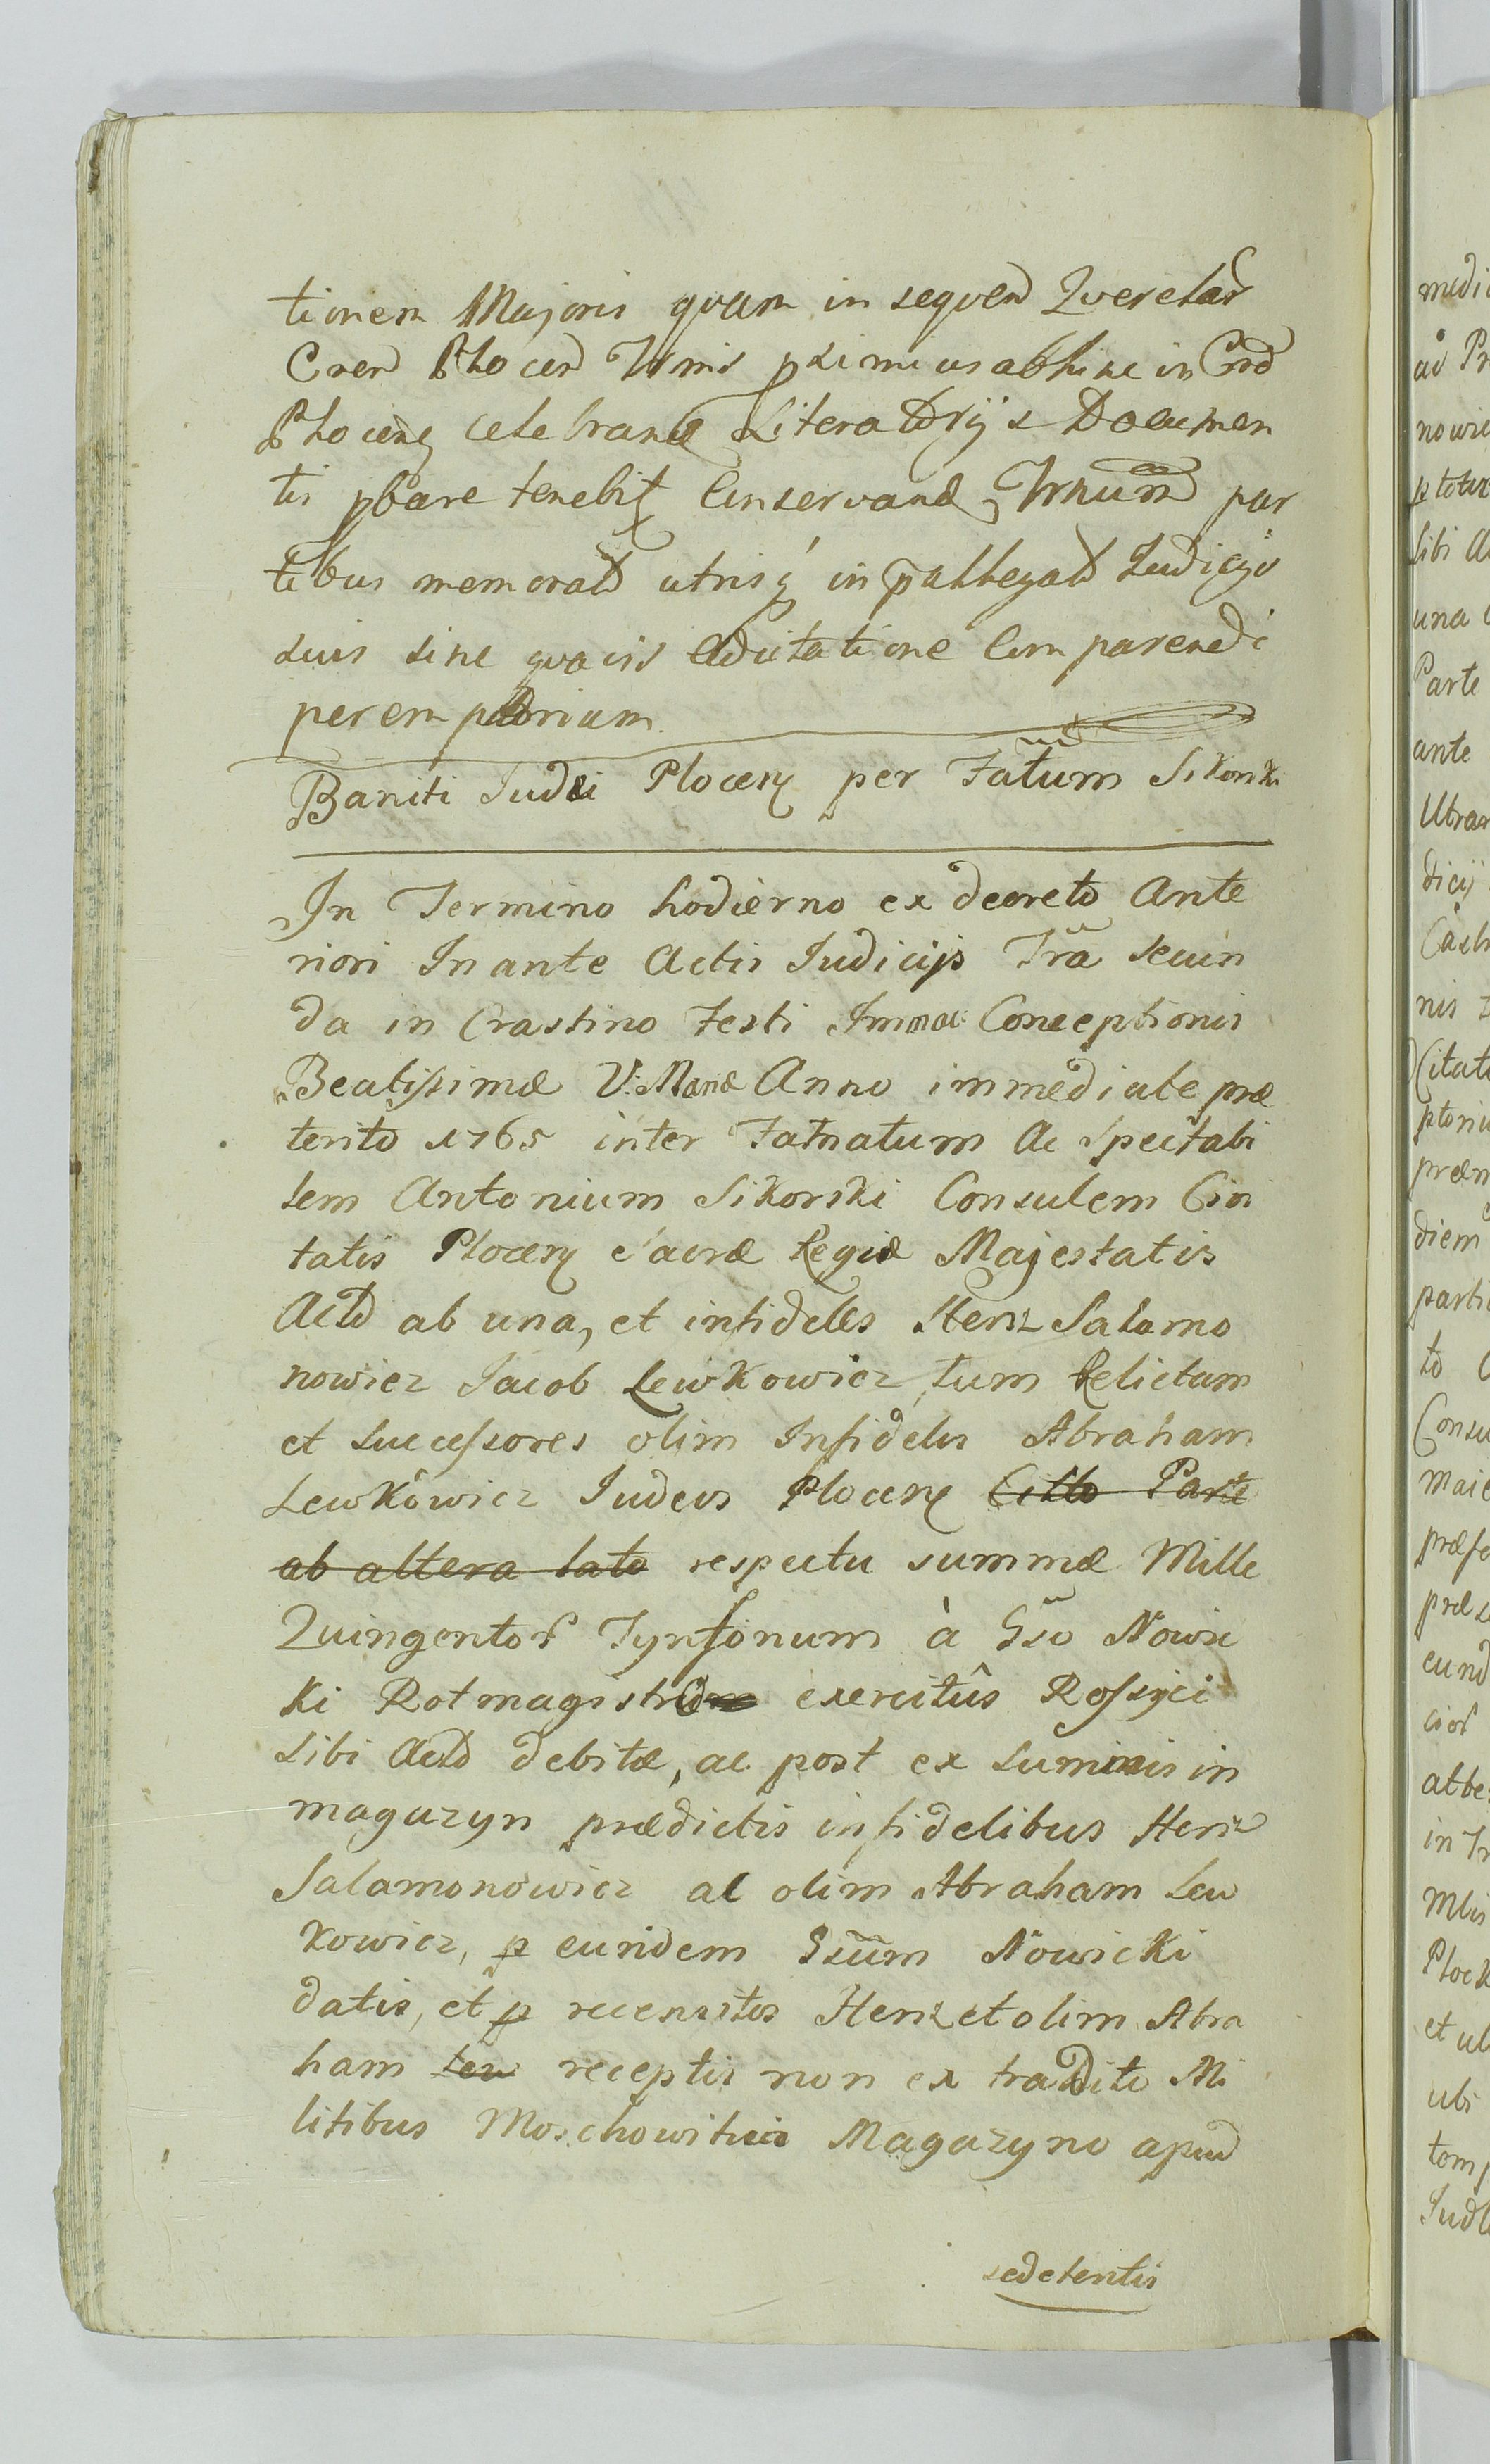 tionem Majoris quam in sequen Querelar
Cren Plocen Trmis primius abhinc in Crd
Plocen celebrand Literatorijs Documen
tis pbare tenebit Conservand Trnum par
tibus memorat utrisq in pallegat Judicijs
suis sine quavis Adcitatione Comparendi
peremptorium.
Baniti Judæi Plocen per Fatum Sikorski
In Termino hodierno ex decreto Ante
riori In ante Actis Judicijs Tra secun
da in Crastino Festi Immac: Conceptionis
Beatissimæ V: Mariæ Anno immediate præ
terito 1765 inter Fatnatum Ac Spectabi
lem Antonium Sikorski Consulem Civi
tatis Plocen Sacræ Regiæ Majestatis
Acto ab una, et infideles Herz Salamo
nowicz Jacob Lewkowicz, tum Relictam
et Successores olim Infidelis Abraham
Lewkowicz Judeos Plocen Citto Parte
ab altera lato respectu summæ Mille
Quingentor Tynfonum à Gso Nowic
ki Rotmagistro exercitûs Rossyici
sibi Acto debitæ, ac post ex summis in
magazyn prædictis infidelibus Herz
Salamonowicz ac olim Abraham Lew
kowicz, p eundem Gsum Nowicki
datis, et p recensitos Herz et olim Abra
ham Lew receptis non extradito Mi
litibus Moschowiticis Magazyno apud
se detentis
medi
ad Pr
nowic
p totu
sibi A
una
Parte
ante
Utram
dicij
Castr
nis
Citat
ptoriu
præm
diem
parti
to
Consu
Maie
præfa
præs
eund
cior
albe
in Tr
Mlis
Plock
et ul
ubi
tem
Jud